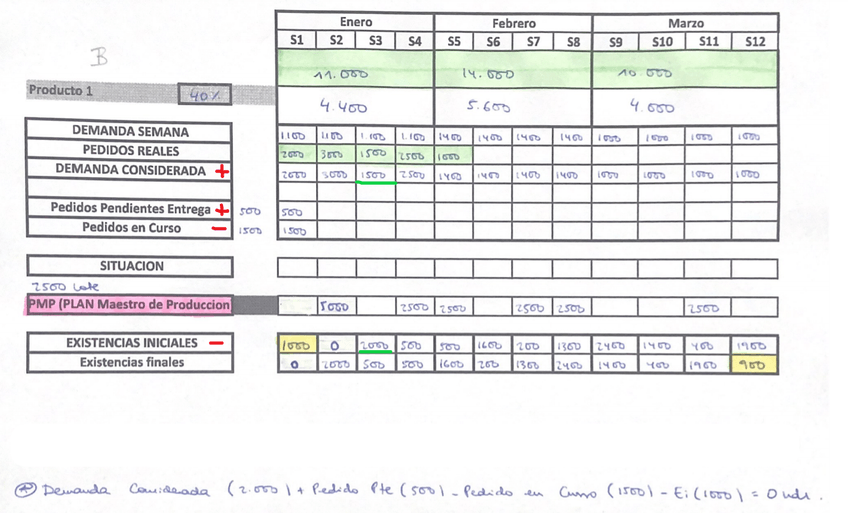 Enero Febrero Marzo
S1 S2 S3 S4 S5 S6 S7 S8 S9 S10 S11 S12
B
11.000 14.000 10.000
Producto 1 40% 4.400 5.600 4.000
DEMANDA SEMANA 1.100 1.100 1.100 1.100 1400 1400 1400 1400 1000 1000 1000 1000
PEDIDOS REALES 2000 3000 1500 2500 1000
DEMANDA CONSIDERADA + 2000 3000 1500 2500 1400 1400 1400 1400 1000 1000 1000 1000
Pedidos Pendientes Entrega + 500 500
Pedidos en Curso - 1500 1500
SITUACION
2500 lote
PMP (PLAN Maestro de Produccion 5000 2500 2500 2500 2500 2500
EXISTENCIAS INICIALES - 1000 0 2000 500 500 1600 200 1300 2400 1400 400 1900
Existencias finales 0 2000 500 500 1600 200 1300 2400 1400 400 1900 900
Demanda Considerada (2.000) + Pedido Pte (500) - Pedido en Curso (1500) - Ei (1000) = 0 uds.